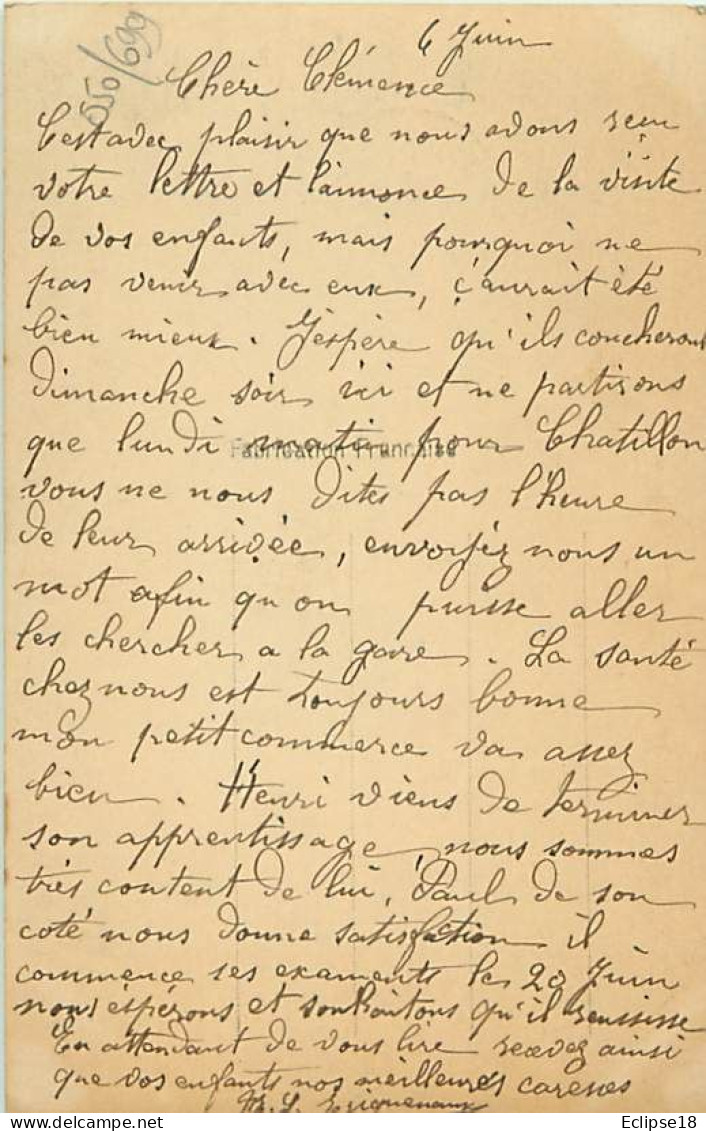 550/699
6 Juin
Chère Clémence
C'est avec plaisir que nous avons reçu
votre lettre et l'annonce de la visite
de vos enfants, mais pourquoi ne
pas venir avec eux, ç'aurait été
bien mieux. J'espère qu'ils coucheront
Dimanche soir ici et ne partirons
que lundi matin pour Chatillon
Fabrication Française
vous ne nous dites pas l'heure
de leur arrivée, envoyez nous un
mot afin qu on puisse aller
les chercher a la gare. La santé
chez nous est toujours bonne
mon petit commerce va assez
bien. Henri viens de terminer
son apprentissage, nous sommes
très content de lui, Paul de son
coté nous donne satisfaction il
commence ses examents le 20 Juin
nous éspérons et souhaitons qu'il reussisse
En attendant de vous lire recevez ainsi
que vos enfants nos meilleures caresses
Eclipse18